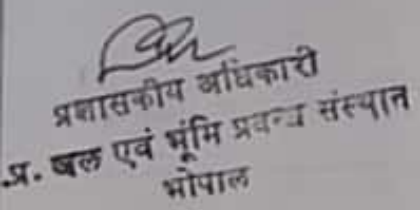 प्रशासकीय अधिकारी
.प्र. जल एवं भूमि प्रबन्ध संस्थान
भोपाल